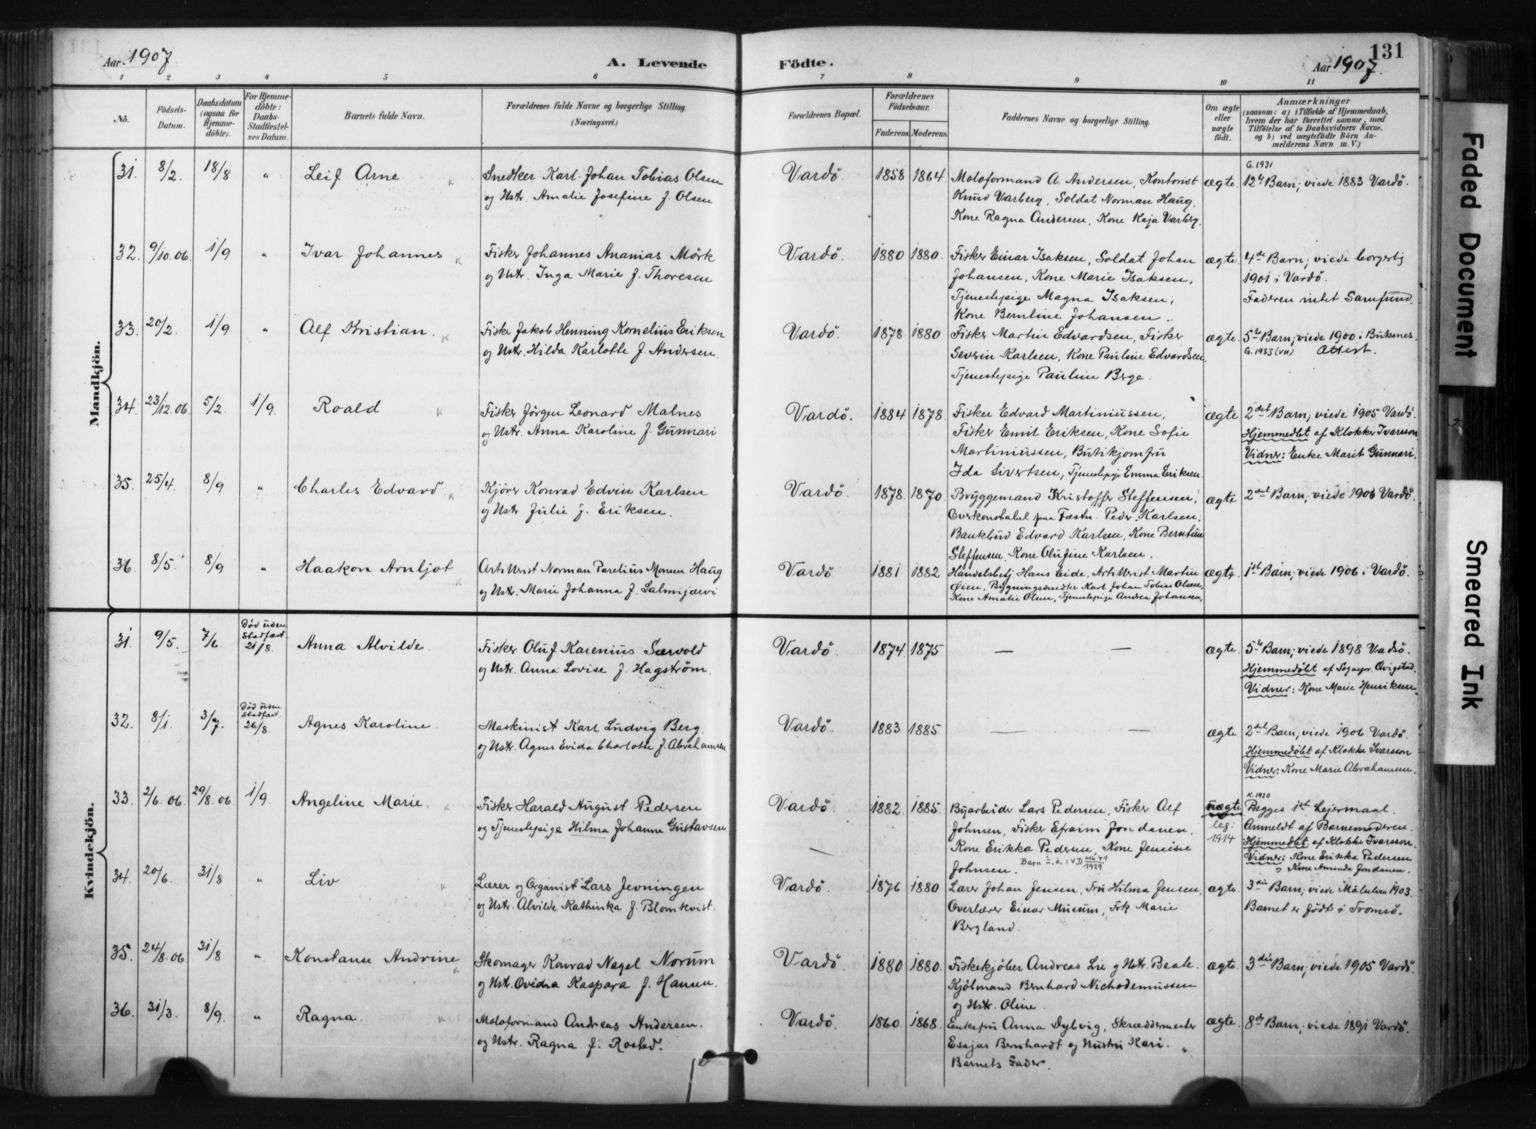 Aar 1907
A. Levende Födte.
Aar 1907.
131
1 2 3 4 5 6 7 8 9 10 11
No.
Födsels-Datum.
Daabsdatum (ogsaa for Hjemmedöbte).
For Hjemmedöbte: Daabs-Stadfæstelses Datum.
Barnets fulde Navn.
Forældrenes fulde Navne og borgerlige Stilling.
(Næringsvei.)
Forældrenes Bopæl.
Forældrenes Födselsaar.
Faderens. Moderens.
Faddernes Navne og borgerlige Stilling.
Om ægte eller uægte födt.
Anmærkninger
(saasom: a) i Tilfælde af Hjemmedaab,
hvem der har forrettet samme, med
Tilföielse af to Daabsvidners Navne,
og b) ved uægtefödte Börn Anmelderens Navn m. V.)
Mandkjön.
31. 8/2. 18/8 " Leif Arne
Snedker Karl Johan Tobias Olsen
og Hstr. Amalie Josefine f. Olsen
Vardö 1858 1864
Motoformand A. Andersen, Kontorist
Knud Varberg, Soldat Norman Haug,
Kone Ragna Andersen, Kone Kaja Varberg.
ægte
G. 1931
12te Barn; viede 1883 Vardö.
32. 9/10.06. 1/9 " Ivar Johannes
Fisker Johannes Ananias Mörk
og Hstr. Inga Marie f. Thoresen
Vardö. 1880 1880.
Fisker Einar Isaksen, Soldat Johan
Johansen, Kone Marie Isaksen,
Tjenestepige Magna Isaksen,
Kone Berntine Johansen.
ægte.
4de Barn; viede borgerlig
1901 i Vardö.
Faderen intet Samfund.
33. 20/2. 1/9 " Alf Kristian.
Fisker Jakob Henning Kornelius Eriksen
og Hstr. Hilda Karlotte f. Andersen.
Vardö 1878 1880
Fisker Martin Edvardsen, Fisker
Severin Karlsen, Kone Pauline Edvardsen,
Tjenestepige Pauline Berge.
ægte
5te Barn; viede 1900 i Buksnes.
G. 1933 (VH) Attest.
34. 23/12.06. 5/2. 1/9. Roald
Fisker Jörgen Leonard Malnes
og Hstr. Anna Karoline f. Gunnari
Vardö. 1884 1878.
Fisker Edvard Martiniussen,
Fisker Emil Eriksen, Kone Sofie
Martiniussen, Butikjomfru
Ida Sivertsen, Tjenestepige Emma Eriksen
ægte
2det Barn; viede 1905 Vardö.
Hjemmedöbt af Klokker Ivarsson
Vidner: Enke Marit Gunnari.
35. 25/4. 8/9 " Charles Edvard
Kjörer Konrad Edvin Karlsen
og Hstr. Julie f. Eriksen.
Vardö. 1878. 1870.
Bryggemand Kristoffer Steffensen,
Overkonstabel paa Fæstn. Peder Karlsen,
Bankbud Edvard Karlsen, Kone Berntine
Steffensen, Kone Olufine Karlsen.
ægte
2det Barn; viede 1906 Vardö.
36. 8/5. 8/9 " Haakon Arnljot
og Hstr. Marie Johanna f. Salmijærvi
Vardö 1881 1882
Öien, Bygningssnedker Karl Johan Tobias Olsen,
Kone Amalie Olsen, Tjenestepige Andrea Johansen.
ægte.
1ste Barn; viede 1906 i Vardö.
Kvindekjön.
31. 9/5. 7/6 Död uden Stadfæst. 21/8. Anna Alvilde.
Fisker Oluf Karenius Sævold
og Hstr. Anna Lovise f. Hagström.
Vardö. 1874 1875 — —
ægte.
5te Barn; viede 1898 Vardö.
Hjemmedöbt af Sognepr. Qvigstad.
Vidner: Kone Marie Henriksen.
32. 8/1. 3/7. Död uden Stadfæst 26/8. Agnes Karoline.
Maskinist Karl Ludvig Berg
og Hstr. Agnes Evida Charlotte f. Abrahamsen
Vardö. 1883 1885 — —
ægte.
2det Barn; viede 1906 Vardö.
Hjemmedöbt af Klokker Ivarsson
Vidner: Kone Marie Abrahamsen.
33. 2/6.06. 29/8.06 1/9. Angeline Marie.
Fisker Harald August Pedersen
og Tjenestepige Hilma Johanne Gustavsen
Vardö. 1882. 1885.
Byarbeider Lars Pedersen, Fisker Alf
Johnsen, Fisker Efraim Jordanen.
Kone Erikka Pedersen, Kone Jensine
Johnsen.
uægte
leg. 1914
K. 1920
Begges 1ste Leiermaal.
Anmeldt af Barnemoderen.
Hjemmedöbt af Klokker Ivarsson.
Vidner: Kone Erikka Pedersen
og Kone Amanda Jordanen.
34. 20/6. 31/8 " Liv
Lærer og Organist Lars Jevningen
og Hstr. Alvilde Kathinka f. Blomkvist.
Vardö. 1876 1880
Lærer Johan Jensen, Fru Hilma Jensen,
Overlærer Einar Musum, Frk Marie
Bergland.
ægte.
3die Barn; viede Målselven 1903.
Barnet er födt i Tromsö.
35. 24/8.06 31/8 " Konstanse Andrine
Skomager Konrad Nagel Norum
og Hstr. Ovidia Kaspara f. Hansen.
Vardö. 1880 1880.
Fiskekjöber Andreas Lie og Hstr. Beate.
Kjölmand Bernhard Nichodemussen
og Hstr. Oline
ægte.
3die Barn; viede 1905 Vardö.
36. 31/3. 8/9. " Ragna.
Motoformand Andreas Andersen.
og Hstr. Ragna f. Rosted.
Vardö. 1860 1868.
Enkefru Anna Dybvig, Skræddermester
Esajas Bernhardt og Hustru Kari.
Barnets Fader.
ægte.
8de Barn; viede 1891 Vardö.
Faded Document
Smeared Ink